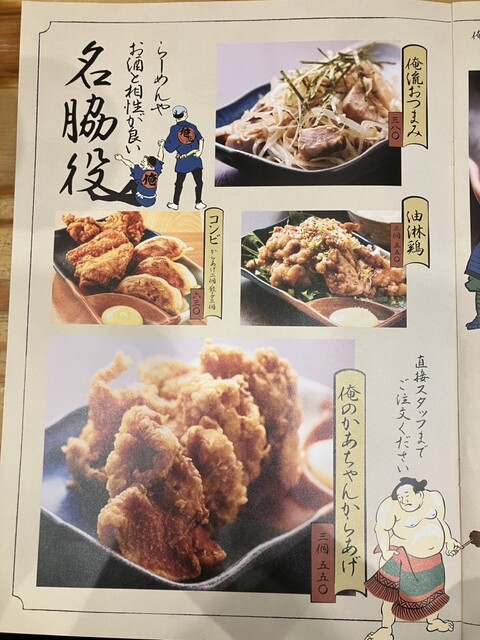 らーめんや
お酒と相性が良い
名脇役
俺
俺流おつまみ
三八〇
油淋鶏
三個 五五〇
コンビ からあげ二個 餃子三個
六三〇
俺のかあちゃんからあげ
三個 五五〇
直接スタッフまで
ご注文ください